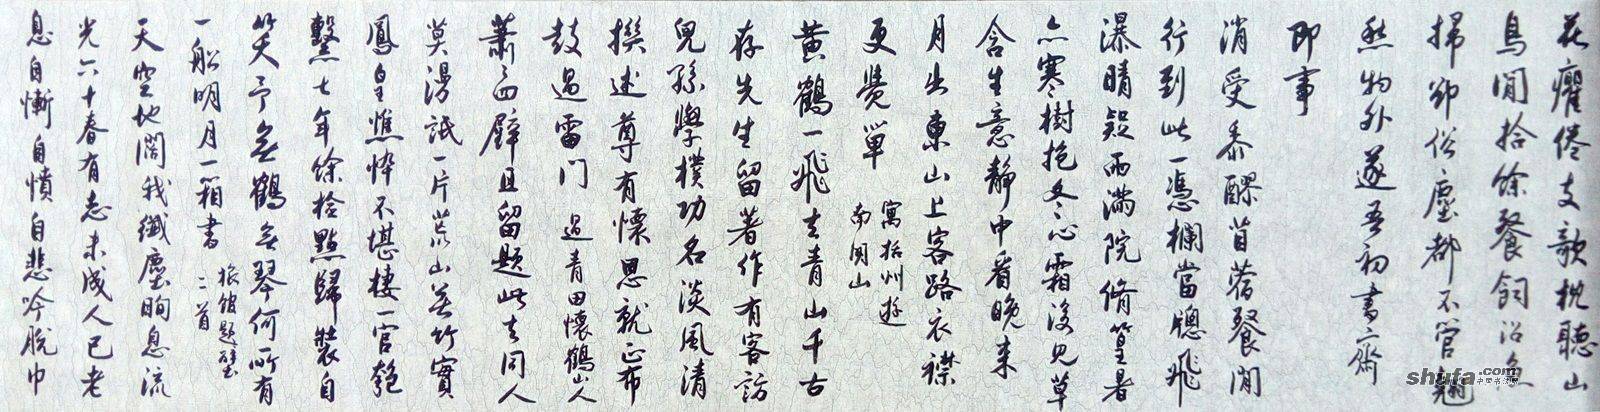 花癯倦支歌枕聽山
鳥閒拾餘餐飼治魚
掃卻俗塵都不管翛
然物外遂吾初 書齋
即事
消受黍醪苜蓿餐閒
行到此一憑欄當牕飛
瀑晴疑雨滿院脩篁暑
亦寒樹抱冬心霜後見草
含生意靜中看晚來
月出東山上客路衣襟
更覺單
寓括州遊
南明山
黃鶴一飛去青山千古
存先生留著作有客訪
兒孫學樸功名淡風清
撰述尊有懷思就正布
鼓過雷門 過青田懷鶴山人
蕭蕭四壁且留題此去同人
莫漫詆一片荒山無竹實
鳳皇憔悴不堪棲一官匏
繫七年餘檢點歸裝自
笑予無鶴無琴何所有
一船明月一箱書
旅館題壁
二首
天空地闊我纖塵眴息流
光六十春有志未成人已老
息自慚自憤自悲吟脫巾
shufa.com
中国书法网